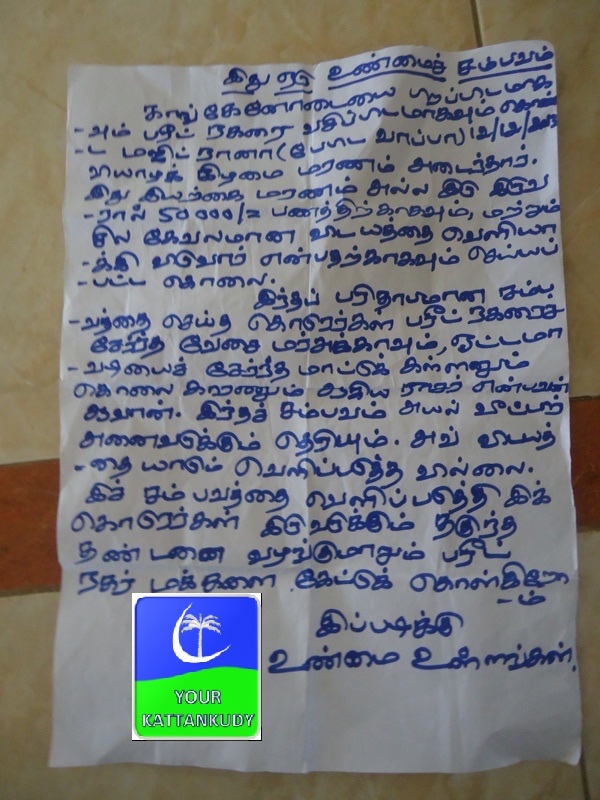 இது ஒரு உண்மைச் சம்பவம்
காங்கேனோடையை பிறப்பிடமாக
-வும் பரீட் நகரை வதிப்பிடமாகவும் கொண்
-ட மஜீட் நானா (பேபட வாப்பா)
வியாழக் கிழமை மரணம் அடைந்தார்.
இது இயற்கை மரணம் அல்ல இது இருவ
-ரால் 50000/= பணத்திற்காகவும், மற்றும்
சில கேவலமான விடயத்தை வெளியா
-க்கி விடுவார் என்பதற்காகவும் செய்யப்
-பட்ட கொலை.
இந்தப் பரிதாபமான சம்ப
-வத்தை செய்த கொடூரர்கள் பரீட் நகரைச்
சேர்ந்த, ஒட்டமா
-வடியைச் சேர்ந்த மாட்டுக் கள்ளனும்
கொலை காறணும் ஆகிய நாசர் என்பவன்
ஆவான். இந்தச் சம்பவம் அயல் வீட்டார்
அனைவருக்கும் தெரியும். அவ் விடயத்
-தை யாரும் வெளிப்படுத்த வில்லை.
இச் சம்பவத்தை வெளிப்படுத்தி இக்
கொடூரர்கள் இருவருக்கும் தகுந்த
தண்டனை வழங்குமாறும் பரீட்
நகர் மக்களை கேட்டுக் கொள்கிறோ
-ம்
இப்படிக்கு
உண்மை உள்ளங்கள்.
YOUR
KATTANKUDY